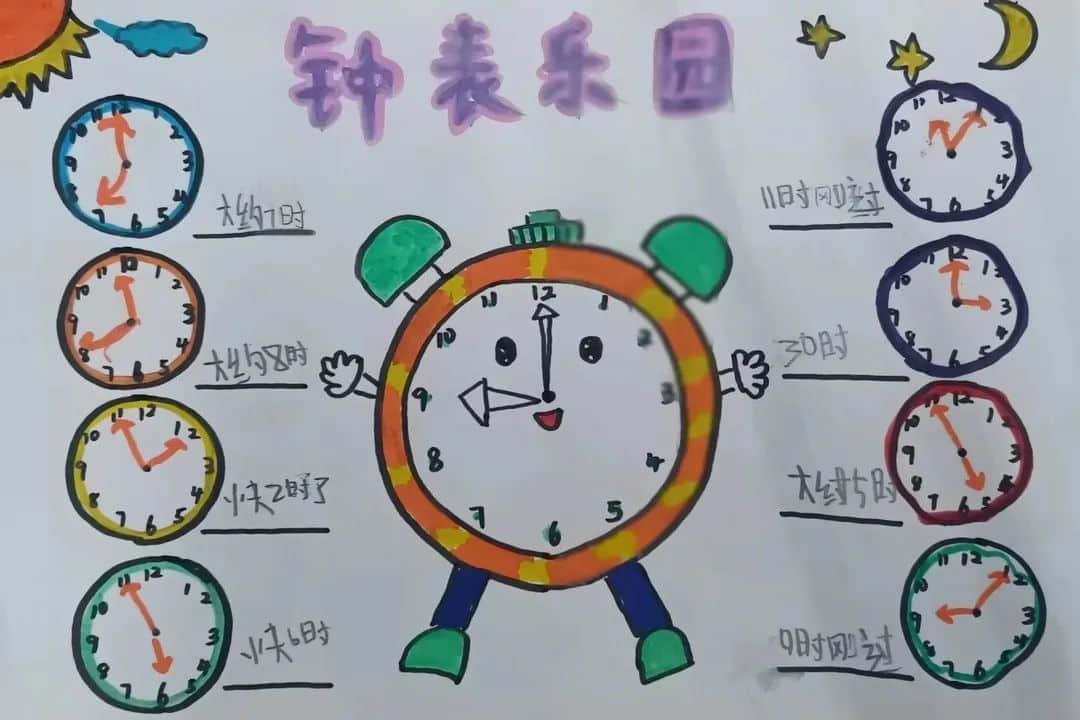 钟表乐园
12 1 2 3 4 5 6 7 8 9 10 11
大约7时
12 1 2 3 4 5 6 7 8 9 10 11
大约8时
12 1 2 3 4 5 6 7 8 9 10 11
快2时了
12 1 2 3 4 5 6 7 8 9 10 11
快6时
12 1 2 3 4 5 6 7 8 9 10 11
12 1 2 3 4 5 6 7 8 9 10 11
11时刚过
12 1 2 3 4 5 6 7 8 9 10 11
30时
12 1 2 3 4 5 6 7 8 9 10 11
大约5时
12 1 2 3 4 5 6 7 8 9 10 11
9时刚过